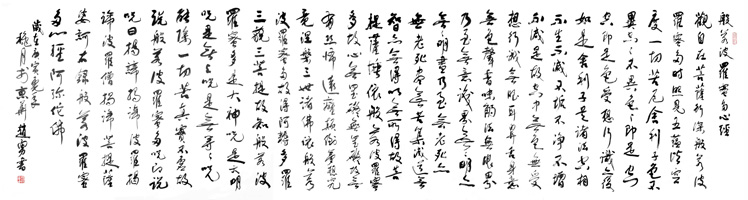 般若波羅蜜多心经
觀自在菩薩行深般若波
羅蜜多時照見五蕴皆空
度一切苦厄舍利子色不
異空空不異色色即是空
空即是色受想行識亦復
如是舍利子是諸法空相
不生不滅不垢不净不增
不減是故空中無色無受
想行識無眼耳鼻舌身意
無色聲香味觸法無眼界
乃至無意識界無無明亦
無無明盡乃至無老死亦
無老死盡無苦集滅道無
智亦無得以無所得故菩
提薩埵依般若波羅蜜
多故心無罣礙無罣礙故無
有恐怖遠離顛倒夢想究
竟涅槃三世諸佛依般若
波羅蜜多故得阿耨多羅
三藐三菩提故知般若波
羅蜜多是大神咒是大明
咒是無上咒是無等等咒
能除一切苦真實不虛故
說般若波羅蜜多咒即說
咒曰揭諦揭諦波羅揭
諦波羅僧揭諦菩提薩
婆訶般若波羅蜜
多心經阿彌陀佛
歲在
月於京華趙勇書